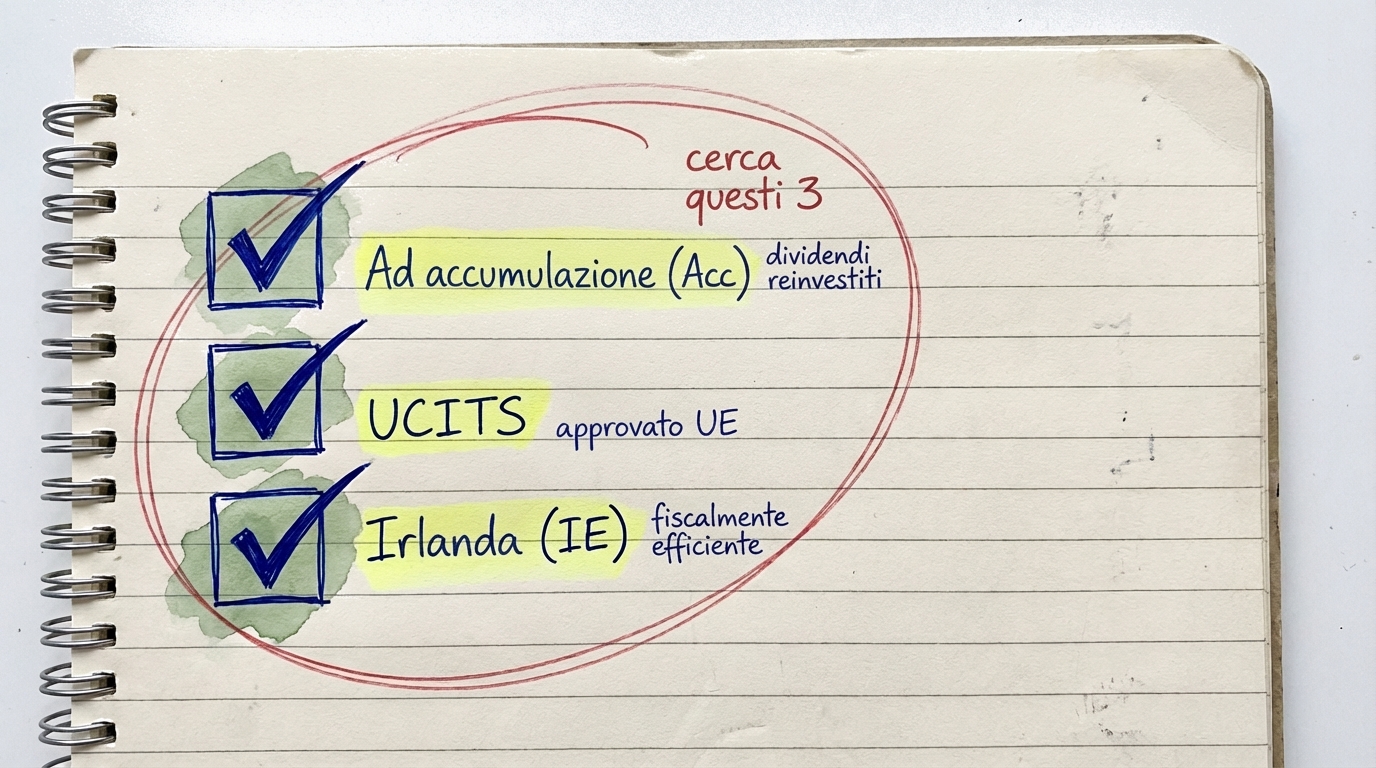 cerca
questi 3
Ad accumulazione (Acc)
dividendi
reinvestiti
UCITS
approvato UE
Irlanda (IE)
fiscalmente
efficiente